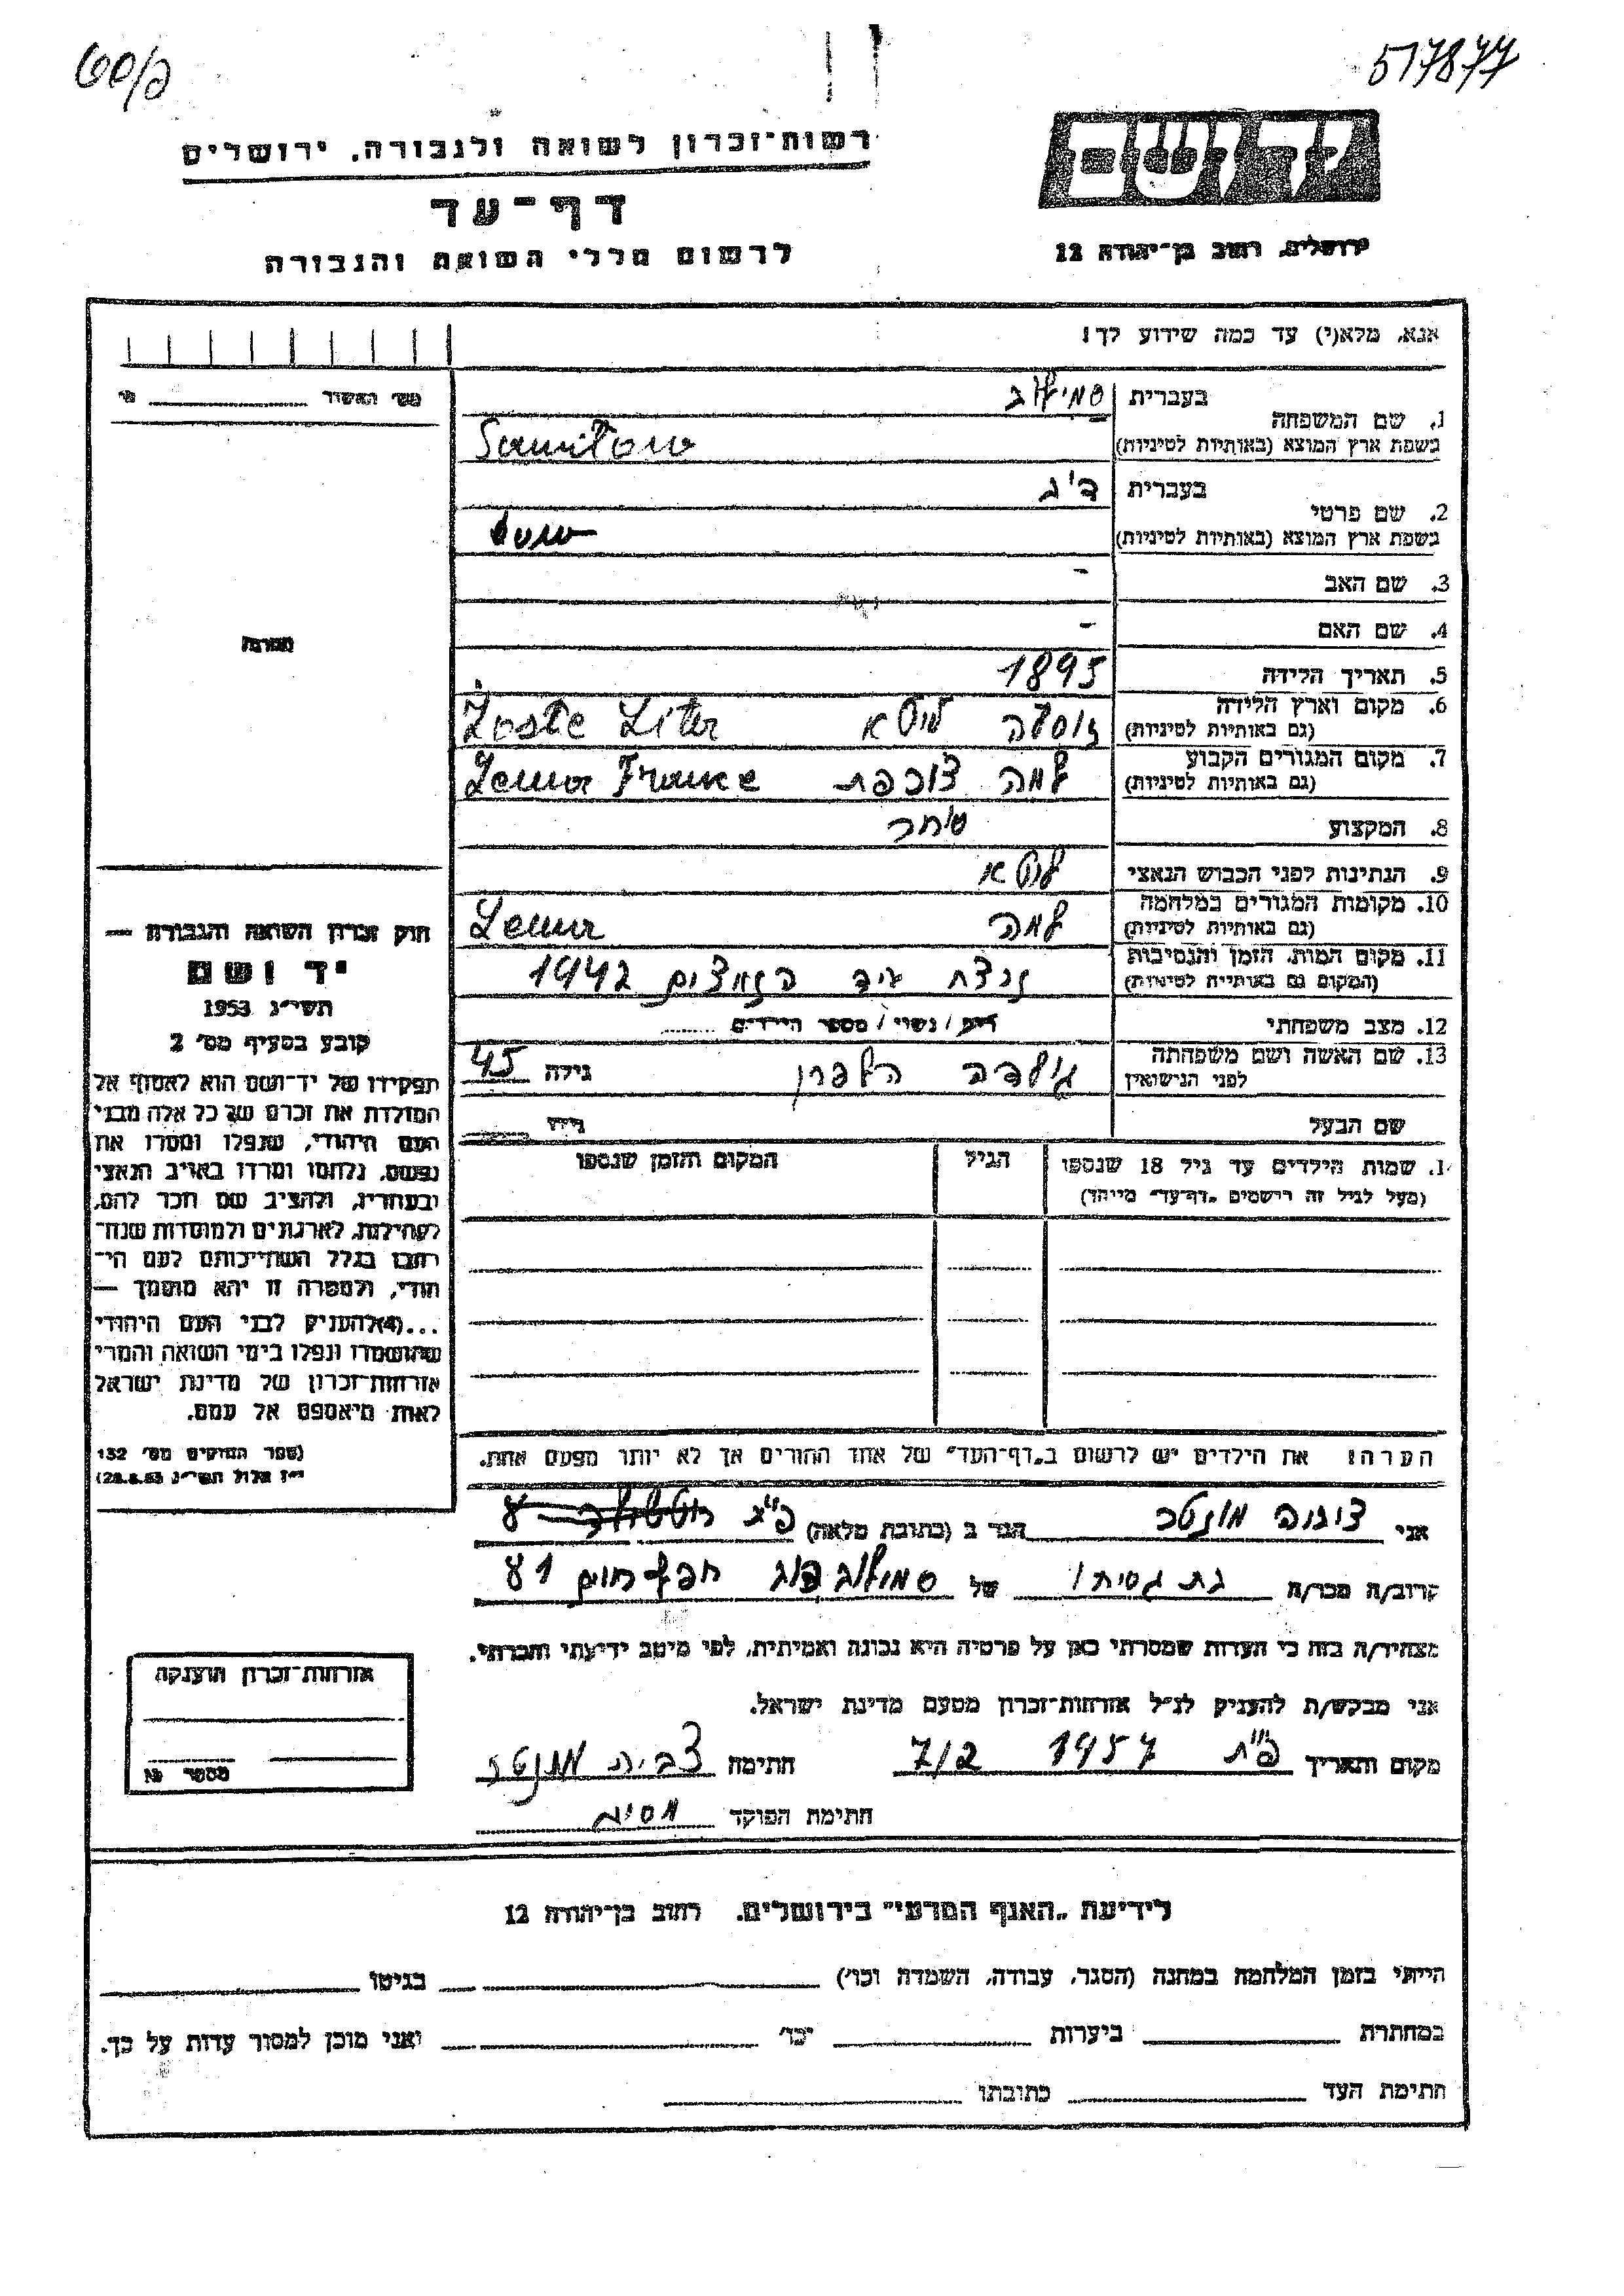 517877
רשות־זכרון לשואה ולגבורה, ירושלים
דף־עד
לרשום חללי השואה והגבורה
יד ושם
ירושלים, רחוב בן־יהודה 12
אנא, מלא(י) עד כמה שידוע לך!
מס׳ האשור
1. שם המשפחה
בעברית
בשפת ארץ המוצא (באותיות לטיניות)
2. שם פרטי
בעברית
בשפת ארץ המוצא (באותיות לטיניות)
3. שם האב -
4. שם האם -
5. תאריך הלידה 1895
6. מקום וארץ הלידה
(גם באותיות לטיניות)
ליטא
7. מקום המגורים הקבוע
(גם באותיות לטיניות)
צרפת
8. המקצוע סוחר
9. הנתינות לפני הכבוש הנאצי ליטא
10. מקומות המגורים במלחמה
(גם באותיות לטיניות)
11. מקום המות, הזמן והנסיבות
(המקום גם באותיות לטיניות)
נרצח ע״י הנאצים 1942
12. מצב משפחתי רווק / נשוי / מספר הילדים
13. שם האשה ושם משפחתה
לפני הנישואין
הלפרן גילה 45
שם הבעל גילו
שמות הילדים עד גיל 18 שנספו
(מעל לגיל זה רישמים „דף־עד״ מייחד)
הגיל
המקום והזמן שנספו
הערה: את הילדים יש לרשום ב„דף־העד״ של אחד ההורים אך לא יותר מפעם אחת.
חוק זכרון השואה והגבורה —
יד ושם
תשי״ג 1953
קובע בסעיף מס׳ 2
תפקידו של יד־ושם הוא לאסוף אל
המולדת את זכרם של כל אלה מבני
העם היהודי, שנפלו ומסרו את
נפשם, נלחמו ומרדו באויב הנאצי
ובעוזריו, ולהציב שם וזכר להם,
לקהילות, לארגונים ולמוסדות שנח־
רבו בגלל השתייכותם לעם הי־
הודי, ולמטרה זו יהא מוסמך —
...(4) להעניק לבני העם היהודי
שהושמדו ונפלו בימי השואה והמרי
אזרחות־זכרון של מדינת ישראל
לאות היאספם אל עמם.
(ספר החוקים מס׳ 132
י״ז אלול תשי״ג 28.8.53)
אני הגר ב (כתובת מלאה)
קרוב/ה מכר/ה של
מצהיר/ה בזה כי העדות שמסרתי כאן על פרטיה היא נכונה ואמיתית, לפי מיטב ידיעתי והכרתי.
אני מבקש/ת להעניק לנ״ל אזרחות־זכרון מטעם מדינת ישראל.
מקום ותאריך פ״ת 1957 7/2 חתימה
חתימת הפוקד
אזרחות־זכרון הוענקה
מספר
לידיעת „האגף המדעי״ בירושלים, רחוב בן־יהודה 12
הייתי בזמן המלחמה במחנה (הסגר, עבודה, השמדה וכו׳) בגיטו
במחתרת ביערות וכו׳ ואני מוכן למסור עדות על כך.
חתימת העד כתובתו